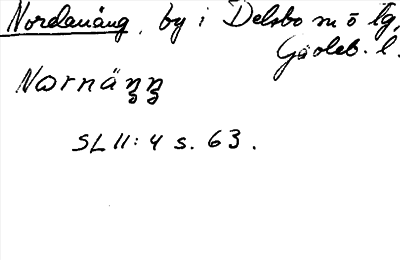 Nordanäng, by i Delsbo sn o tg,
Gävleb. l.
Nɷrnäŋŋ
SL II:4 s. 63.